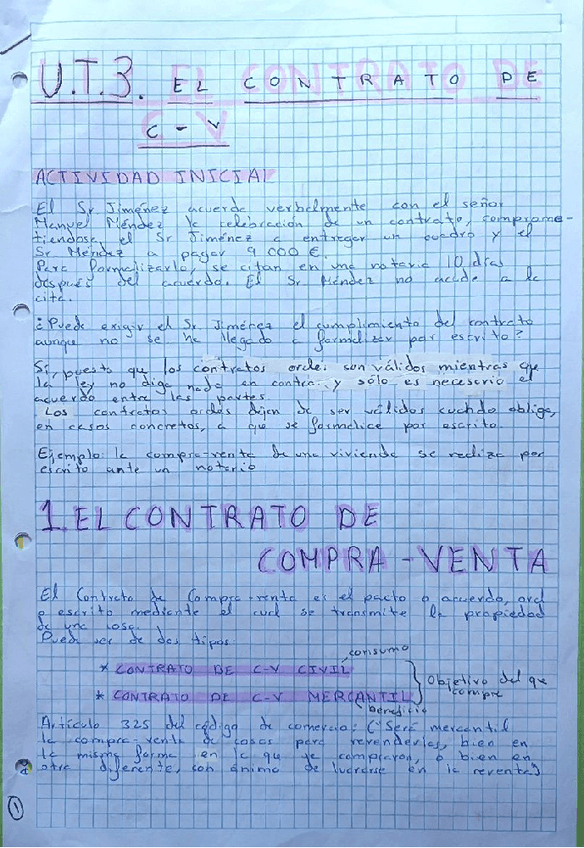 U.T.3. EL CONTRATO DE
C-V
ACTIVIDAD INICIAL
El Sr Jiménez acuerda verbalmente con el señor
Manuel Méndez la celebración de un contrato, comprome-
tiendose el Sr Jiménez a entregar un cuadro y el
Sr Méndez a pagar 9 000 €.
Para formalizarlo, se citan en una notaria 10 días
después del acuerdo. El Sr Méndez no acude a la
cita.
¿Puede exigir el Sr Jiménez el cumplimiento del contrato
aunque no se ha llegado a formalizar por escrito?
Sí, puesto que los contratos orales son válidos mientras que
la ley no diga nada en contra y sólo es necesario el
acuerdo entre las partes.
Los contratos orales dejan de ser válidos cuando obliga,
en casos concretos, a que se formalice por escrito.
Ejemplo: la compra-venta de una vivienda se realiza por
escrito ante un notario
1. EL CONTRATO DE
COMPRA-VENTA
El Contrato de Compra-venta es el pacto o acuerdo, oral
o escrito mediante el cual se transmite la propiedad
de una cosa.
Puede ser de dos tipos:
consumo
* CONTRATO DE C-V CIVIL
* CONTRATO DE C-V MERCANTIL
beneficio
Objetivo del que
compra
Artículo 325 del código de comercio: ("Será mercantil
la compra-venta de cosas para revenderlas, bien en
la misma forma en la que se compraron, o bien en
otra diferente, con ánimo de lucrarse en la reventa)
1